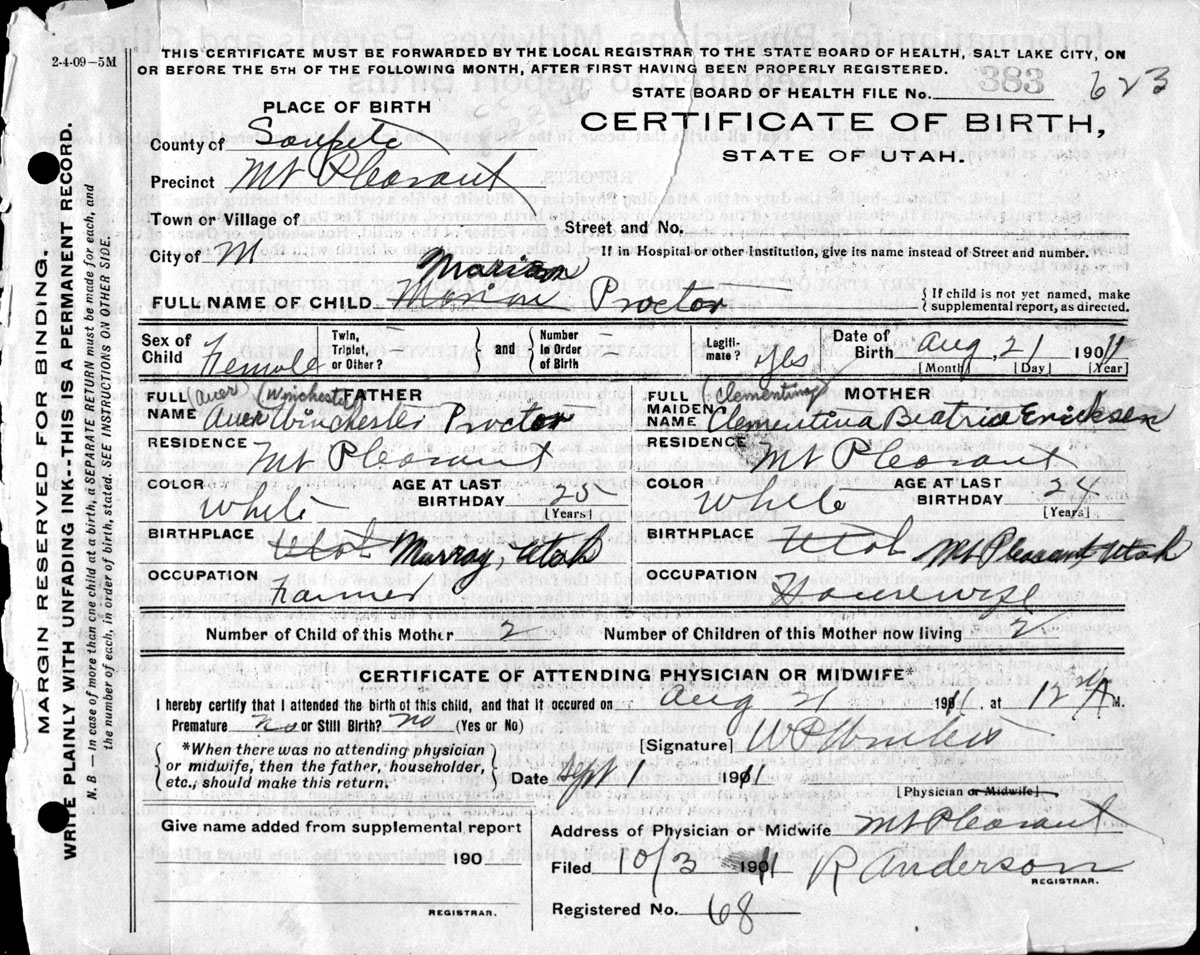 2-4-09—5M
THIS CERTIFICATE MUST BE FORWARDED BY THE LOCAL REGISTRAR TO THE STATE BOARD OF HEALTH, SALT LAKE CITY, ON
OR BEFORE THE 5TH OF THE FOLLOWING MONTH, AFTER FIRST HAVING BEEN PROPERLY REGISTERED.
STATE BOARD OF HEALTH FILE No. 383 623
PLACE OF BIRTH
CERTIFICATE OF BIRTH,
STATE OF UTAH.
County of Sanpete
Precinct Mt Pleasant
Town or Village of
Street and No.
City of M
If in Hospital or other Institution, give its name instead of Street and number.
Marian
FULL NAME OF CHILD Marian Proctor
{ If child is not yet named, make supplemental report, as directed.
Sex of Child Female
Twin, Triplet, or Other? —
and
Number in Order of Birth —
Legiti-mate? Yes
Date of Birth Aug, 21 1911
[Month] [Day] [Year]
FULL NAME (Auer) (Winchester) FATHER
Auer Winchester Proctor
FULL MAIDEN NAME (Clementina) MOTHER
Clementina Beatrice Ericksen
RESIDENCE Mt Pleasant
RESIDENCE Mt Pleasant
COLOR White
AGE AT LAST BIRTHDAY 25 [Years]
COLOR White
AGE AT LAST BIRTHDAY 24 [Years]
BIRTHPLACE Utah Murray, Utah
BIRTHPLACE Utah Mt Pleasant Utah
OCCUPATION Farmer
OCCUPATION Housewife
Number of Child of this Mother 2
Number of Children of this Mother now living 2
CERTIFICATE OF ATTENDING PHYSICIAN OR MIDWIFE*
I hereby certify that I attended the birth of this child, and that it occured on Aug 21 1911, at 12 A M.
Premature no or Still Birth? no (Yes or No)
{ *When there was no attending physician or midwife, then the father, householder, etc., should make this return. }
[Signature]
Date Sept 1 1911
[Physician or Midwife]
Give name added from supplemental report
190
REGISTRAR.
Address of Physician or Midwife Mt Pleasant
Filed 10/3 1911 R Anderson
REGISTRAR.
Registered No. 68
MARGIN RESERVED FOR BINDING.
WRITE PLAINLY WITH UNFADING INK--THIS IS A PERMANENT RECORD.
N. B.—In case of more than one child at a birth, a SEPARATE RETURN must be made for each, and
the number of each, in order of birth, stated. SEE INSTRUCTIONS ON OTHER SIDE.